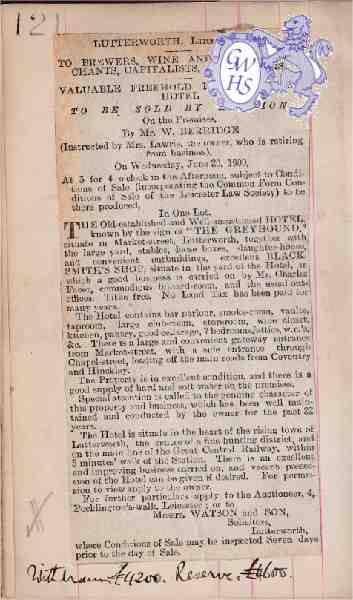 121
LUTTERWORTH,
TO BREWERS, WINE AND
CHANTS, CAPITALISTS,
VALUABLE FREEHOLD
HOTEL
TO BE SOLD BY
On the Premises,
By Mr. W. BERRIDGE
(Instructed by Mrs. Lawrie, the owner, who is retiring
from business),
On Wednesday, June 1900,
At 3 for 4 o'clock in the Afternoon, subject to Condi-
tions of Sale (incorporating the Common Form Con-
ditions of Sale of the Leicester Law Society) to be
there produced,
In One Lot.
THE Old-established and Well-accustomed HOTEL,
known by the sign of "THE GREYHOUND,"
situate in Market-street, Lutterworth, together with
the large yard, stables, loose boxes, slaughter-house,
and convenient outbuildings, excellent BLACK-
SMITH'S SHOP, situate in the yard of the Hotel, in
which a good business is carried on by Mr. Charles
commodious billiard-room, and the usual outer
offices. Tithe free. No Land Tax has been paid for
many years.
The Hotel contains bar parlour, smoke-room, vaults,
taproom, large club-room, storeroom, wine closet,
kitchen, pantry, good cellarage, 7 bedrooms, attics, w.c.'s,
&c. There is a large and convenient gateway entrance
from Market-street, with a side entrance through
Chapel-street, leading off the main roads from Coventry
and Hinckley.
The Property is in excellent condition, and there is a
good supply of hard and soft water on the premises.
Special attention is called to the genuine character of
this property and business, which has been well main-
tained and conducted by the owner for the past 22
years.
The Hotel is situate in the heart of the rising town of
Lutterworth, the centre of a fine hunting district, and
on the main line of the Great Central Railway, within
5 minutes' walk of the Station. There is an excellent
and improving business carried on, and vacant posses-
sion of the Hotel can be given if desired. For permis-
sion to view apply to the owner.
For further particulars apply to the Auctioneer, 4,
Pocklington's-walk, Leicester; or to
Messrs. WATSON and SON,
Solicitors,
Lutterworth,
where Conditions of Sale may be inspected Seven days
prior to the day of Sale.
Withdrawn £4200. Reserve. £4600.
GWHS